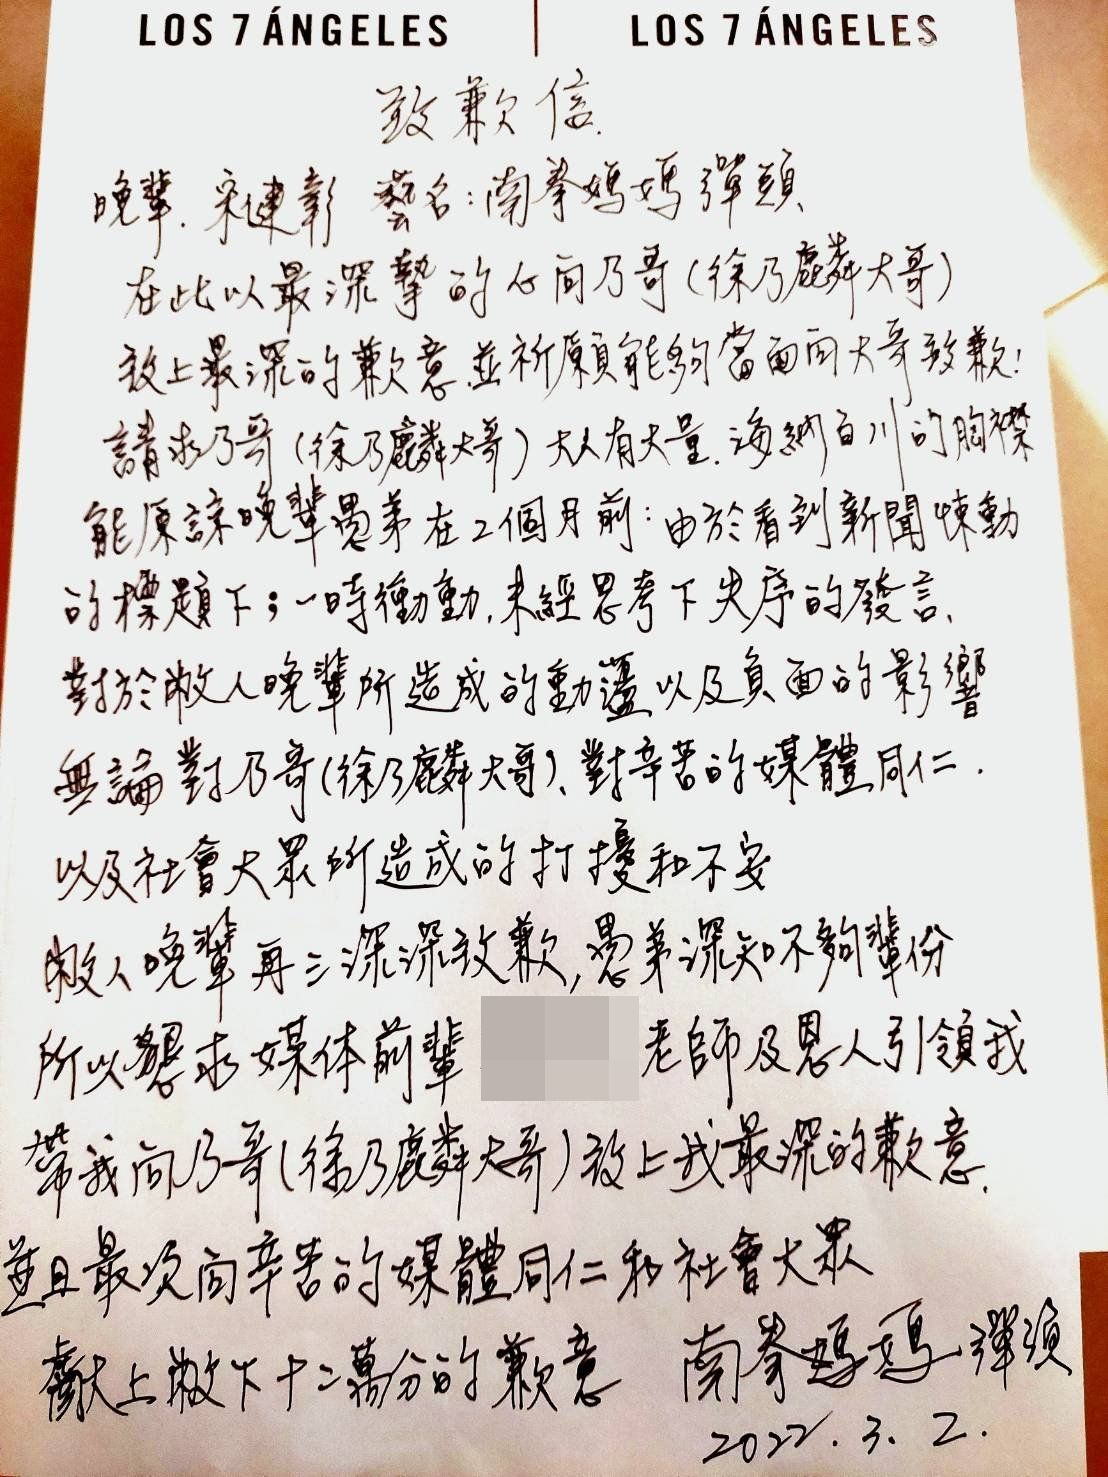 LOS 7 ÁNGELES LOS 7 ÁNGELES
致歉信.
晚輩.宋健彰 藝名:南拳媽媽彈頭
在此以最深摯的心向乃哥(徐乃麟大哥)
致上最深的歉意.並祈願能夠當面向大哥致歉!
請求乃哥(徐乃麟大哥)大人有大量.海納百川的胸襟
能原諒晚輩愚弟在2個月前:由於看到新聞悚動
的標題下;一時衝動.未經思考下失序的發言、
對於敝人晚輩所造成的動盪以及負面的影響
無論對乃哥(徐乃麟大哥)、對辛苦的媒體同仁.
以及社會大眾所造成的打擾和不安
敝人晚輩再三深深致歉,愚弟深知不夠輩份
所以懇求媒体前輩 老師及恩人引領我
帶我向乃哥(徐乃麟大哥)致上我最深的歉意.
並且最次向辛苦的媒體同仁和社會大眾
獻上敝下十二萬分的歉意 南拳媽媽 彈頭
2022.3.2.